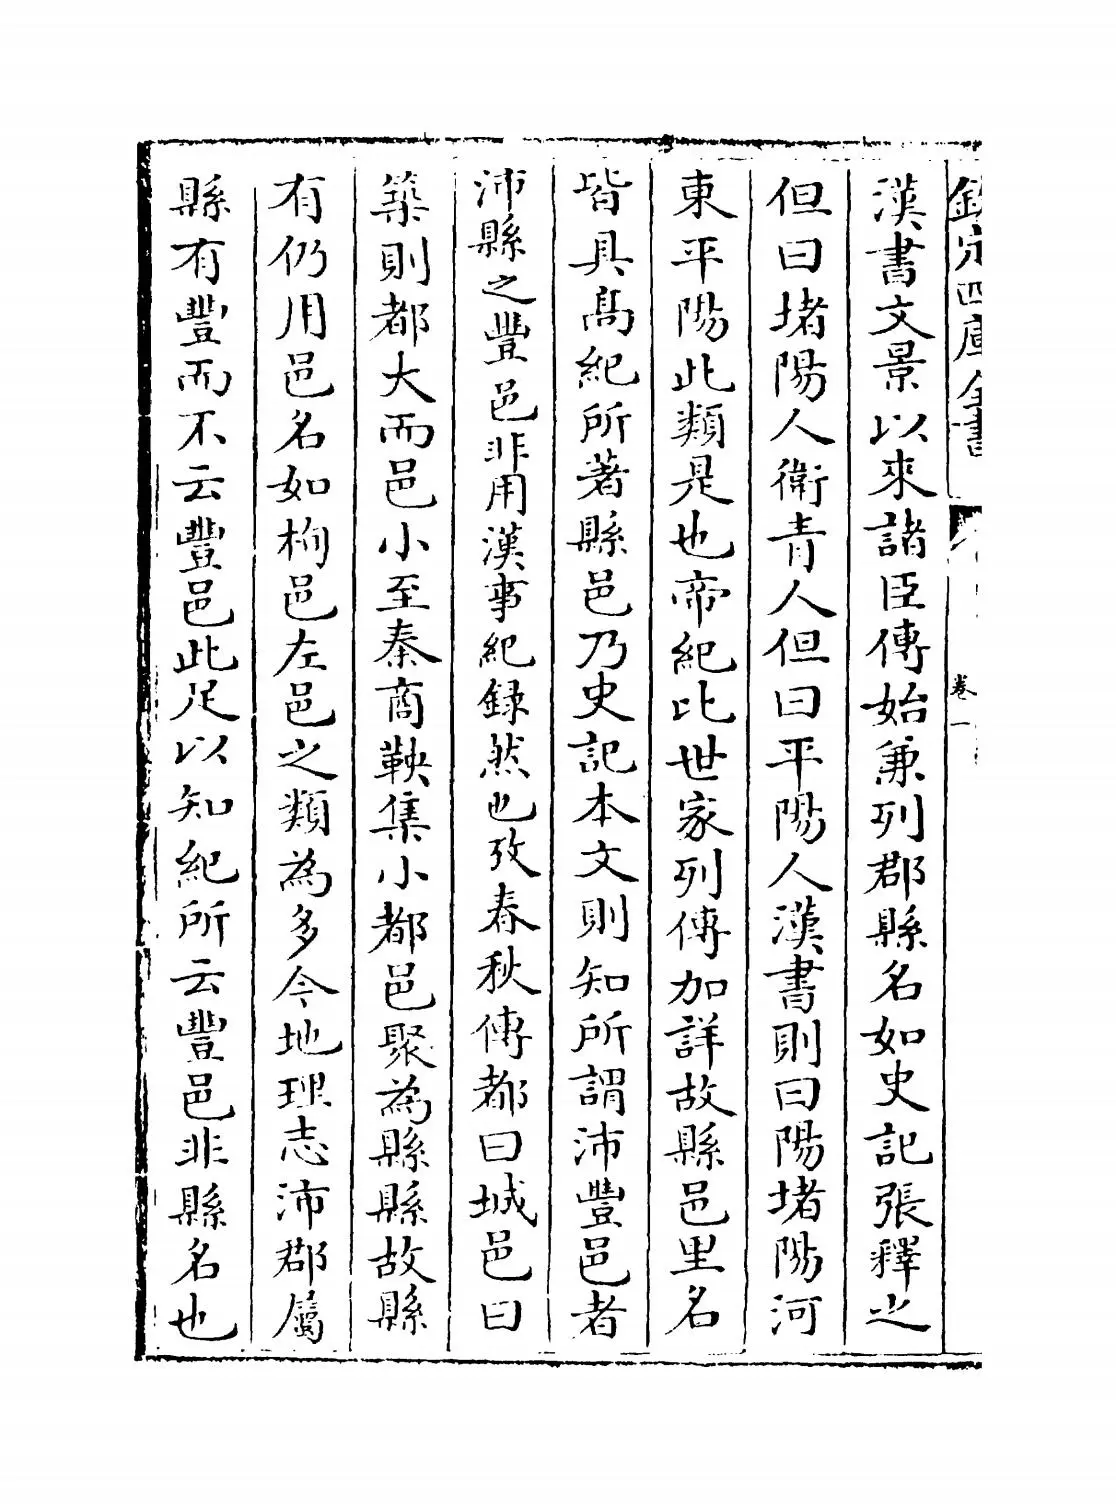 欽定四庫全書
卷一
漢書文景以來諸臣傳始兼列郡縣名如史記張釋之
但曰堵陽人衛青人但曰平陽人漢書則曰陽堵陽河
東平陽此類是也帝紀比世家列傳加詳故縣邑里名
皆具髙紀所著縣邑乃史記本文則知所謂沛豐邑者
沛縣之豐邑非用漢事紀録然也攷春秋傳都曰城邑曰
築則都大而邑小至秦商鞅集小都邑聚為縣縣故縣
有仍用邑名如栒邑左邑之類為多今地理志沛郡屬
縣有豐而不云豐邑此足以知紀所云豐邑非縣名也